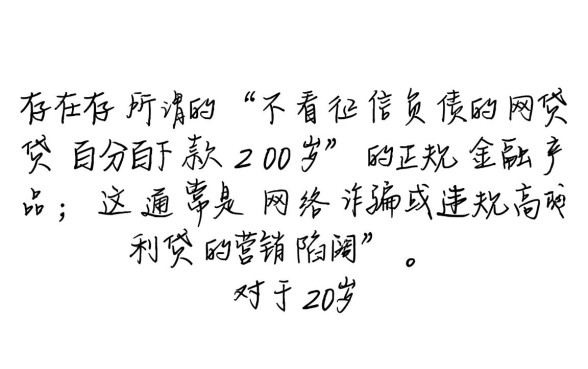 存在存所谓的“不看征信负债的网贷
贷百分百下款200岁”的正规金融产
品；这通常是网络诈骗或违规高
利贷的营销陷阱”。
对于20岁